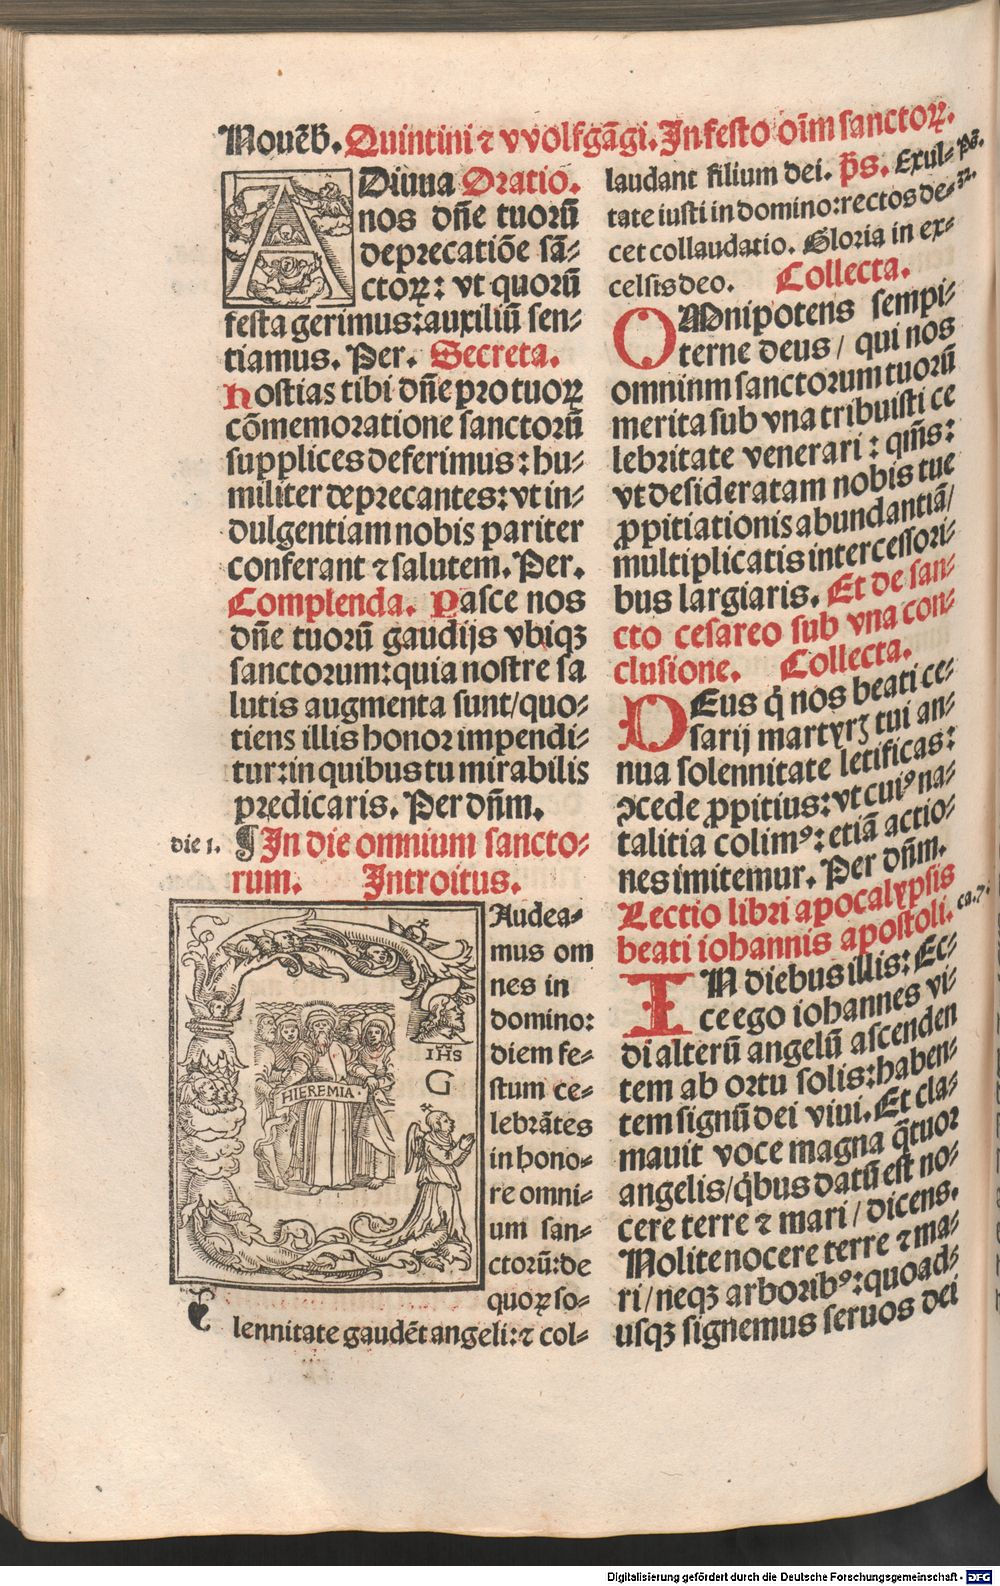 Nouēb. Quintini ⁊ vvolfgāgi. In festo oīm sanctoꝝ.
ADiuua Oratio.
nos dn̄e tuorū
deprecatiōe sā⸗
ctoꝝ: vt quorū
festa gerimus: auxiliū sen⸗
tiamus. Per. Secreta.
Hostias tibi dn̄e pro tuoꝝ
cōmemoratione sanctorū
supplices deferimus: hu⸗
militer deprecantes: vt in⸗
dulgentiam nobis pariter
conferant ⁊ salutem. Per.
Complenda. Pasce nos
dn̄e tuorū gaudijs vbiqꝫ
sanctorum: quia nostre sa
lutis augmenta sunt/ quo⸗
tiens illis honor impendi⸗
tur: in quibus tu mirabilis
predicaris. Per dn̄m.
die 1. ¶ In die omnium sancto⸗
rum. Introitus.
GAudea⸗
mus om
nes in
domino:
diem fe⸗
stum ce⸗
lebrātes
in hono⸗
re omni⸗
um san⸗
ctorū: de
quoꝝ so⸗
lennitate gaudēt angeli: ⁊ col⸗
IHS
G
HIEREMIA·
laudant filium dei. p̄s. Exul⸗ ps̄.
tate iusti in domino: rectos de⸗ 32.
cet collaudatio. Gloria in ex⸗
celsis deo. Collecta.
OMnipotens sempi⸗
terne deus/ qui nos
omninm sanctorum tuorū
merita sub vna tribuisti ce
lebritate venerari: qm̄s:
vt desideratam nobis tue
ꝓpitiationis abundantiā/
multiplicatis intercessori⸗
bus largiaris. Et de san⸗
cto cesareo sub vna con⸗
clusione. Collecta.
DEus q̇ nos beati ce⸗
sarij martyrꝫ tui an⸗
nua solennitate letificas:
ꝯcede ꝓpitius: vt cuiꝰ na⸗
talitia colimꝰ: etiā actio⸗
nes imitemur. Per dn̄m.
Lectio libri apocalypsis
beati iohannis apostoli. ca. 7.
IN diebus illis: Ec⸗
ce ego iohannes vi⸗
di alterū angelū ascenden
tem ab ortu solis: haben⸗
tem signū dei viui. Et cla⸗
mauit voce magna q̄tuor
angelis/ q̇bus datū est no⸗
cere terre ⁊ mari/ dicens.
Nolite nocere terre ⁊ ma⸗
ri/ neqꝫ arboribꝰ: quoad⸗
usqꝫ signemus seruos dei
Digitalisierung gefördert durch die Deutsche Forschungsgemeinschaft - DFG